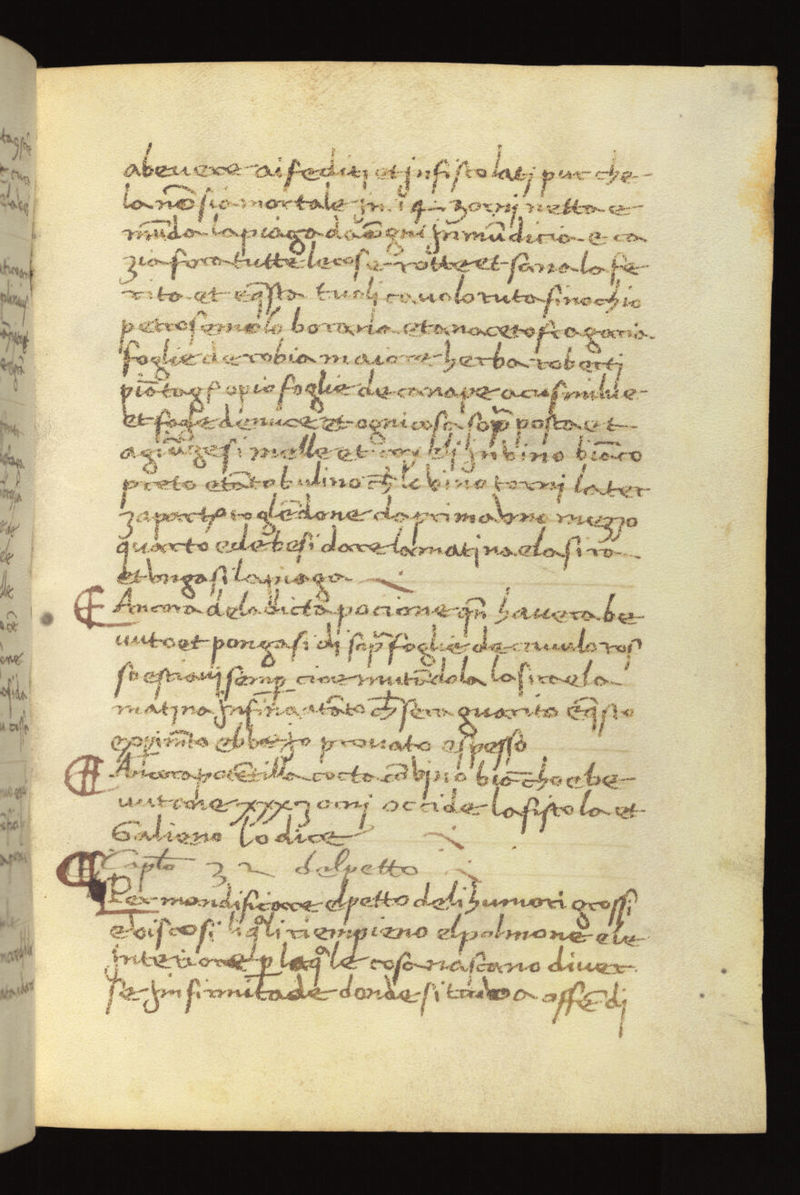 a bevere ai fediti et infistolati pur che
la nō sia mortale in 14 zorni netta e
mūda la piaga da ōgni inmūdicia e ca
zia fora tutte le cose rotte et sana la fe
rita et eq̄sta tuoli cavolo ruta finochio
petrosemolo borana etanaceto fragaria
foglie de robia maiore herba roberti
piātag opio foglie de canape
et fogle de nuce et ogni cosa sop̄ posta et
agiūgesi melle et in vino biāco
preto etāto bulino ch̄ le vino torni la ter
za parte toglēdone da prima uno mezzo
quarto e debesi dare la matina e la sira
et ungasi la piaga
Ancora dela dicta pocione qn̄ havera be
vuto et pongasi di sop̄ foglie de cavolo ros
so estiavi semp̄ cioe mutādola la sira e la
matina infina atāto ch̄ sera guarito eq̄sto
exp̄imēto ebbe io provato espesso
Ancora cocta cō vino biācho ebe
vuta che xxx zorni occide la fistola et
Galieno lo dice
Cap̄lo 32 del petto
Per mondificare el petto deli humori grossi
e viscosi li q̄li riempieno el polmone ele
interiore p̄ laq̄le cosa nascano diver
se infirmitade donde si truova offēdi